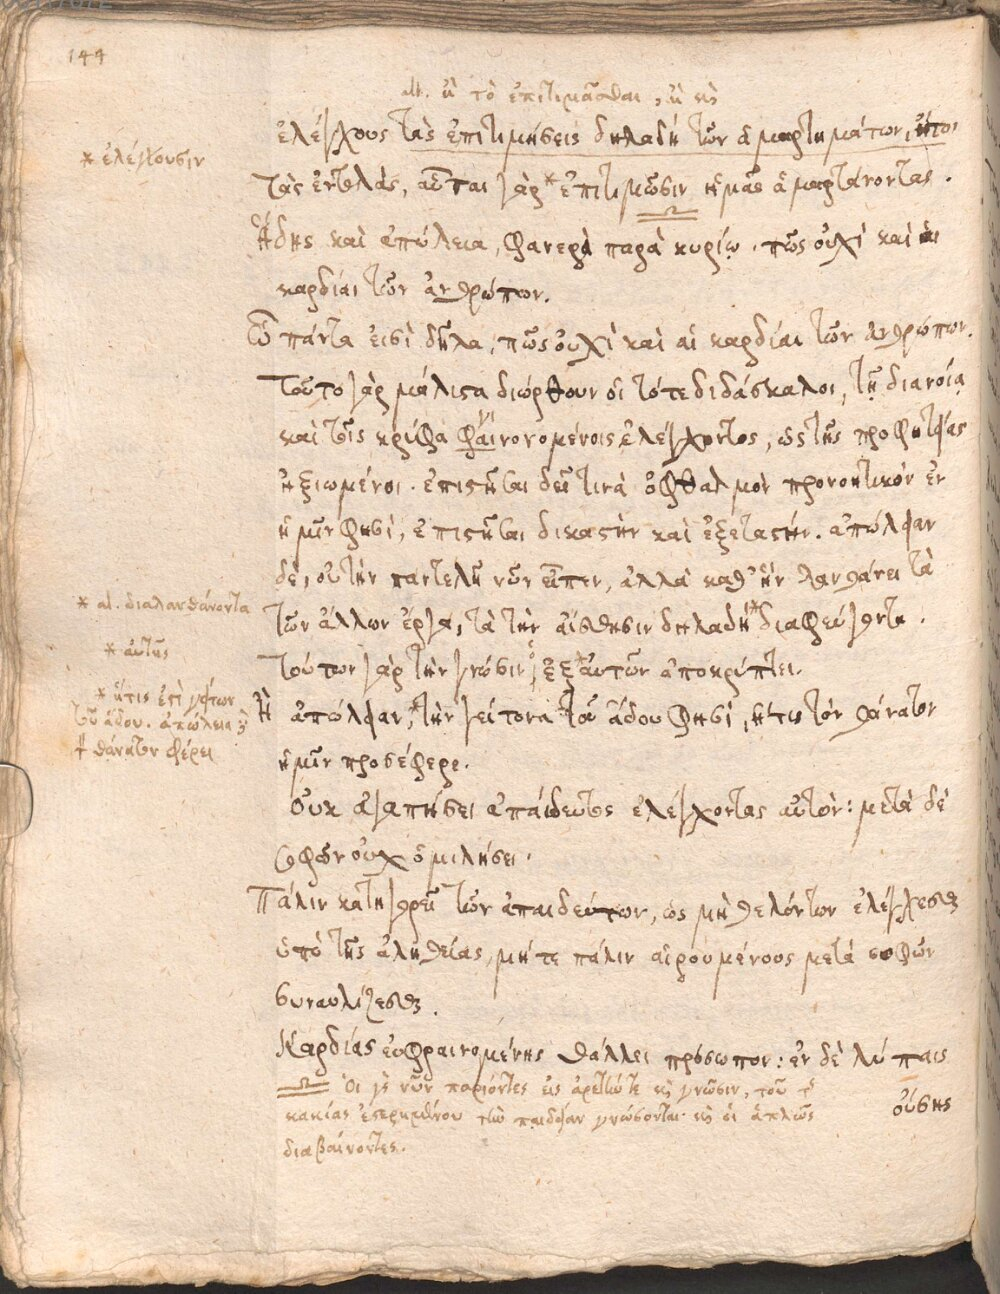 144
al. κ̀ τὸ ἐπιτιμᾶσθαι, κ̀ εἰς
ἐλέγχους τὰς ἐπιτιμήσεις δηλαδὴ τῶν ἁμαρτημάτων, ἤτοι
* ἐλέγχουσιν
τὰς ἐντολὰς, αὗται γὰρ * ἐπιτιμῶσιν ἡμᾶς ἁμαρτάνοντας.
ᾅδης καὶ ἀπώλεια, φανερὰ παρὰ κυρίῳ. πῶς οὐχὶ καὶ αἱ
καρδίαι τῶν ἀνθρώπων.
ᾧ πάντα εἰσὶ δῆλα, πῶς οὐχὶ καὶ αἱ καρδίαι τῶν ἀνθρώπων.
Τοῦτο γὰρ μάλιστα διώρθουν οἱ τότε διδάσκαλοι, τῇ διανοίᾳ
καὶ τοῖς κρύφα ἐλέγχοντες, ὡς τῆς προφητείας
ἠξιωμένοι. ἐπιστῆσαι δεῖ τινὰ ὀφθαλμὸν προνοητικὸν ἐν
ἡμῖν φησὶ, ἐπιστῆσαι δικαστὴν καὶ ἐξεταστήν. ἀπώλειαν
δὲ, οὐ τὴν παντελῆ νῦν εἶπεν, ἀλλὰ καθ' ἣν λανθάνει τὰ
* al. διαλανθάνοντα
τῶν ἄλλων ἔργα, τὰ τὴν αἴσθησιν δηλαδὴ * διαφεύγοντα.
* αὐτῆς
τούτων γὰρ τὴν γνῶσιν, ἐξ * αὐτῶν ἀποκρύπτει.
* ἥτις ἐστὶ γείτων
τοῦ ᾅδου. ἀπώλεια
ἡ θάνατον φέρει
Ἢ ἀπώλειαν, * τὴν γείτονα τοῦ ᾅδου φησὶ, ἥτις τὸν θάνατον
ἡμῖν προσέφερε.
Οὐκ ἀγαπήσει ἀπαίδευτος ἐλέγχοντας αὐτόν: μετὰ δὲ
σοφῶν οὐχ ὁμιλήσει.
Πάλιν κατηγορεῖ τῶν ἀπαιδεύτων, ὡς μὴ θελόντων ἐλέγχεσθαι
ὑπὸ τῆς ἀληθείας, μήτε πάλιν αἱρουμένους μετὰ σοφῶν
συναυλίζεσθαι.
Καρδίας εὐφραινομένης θάλλει πρόσωπον: ἐν δὲ λύπαις
οὔσης
Οἱ νῦν παριόντες εἰς ἀρετὴν τε κ̀ γνῶσιν, τοῦ τῆς
κακίας τὴν παιδείαν γνώσονται κ̀ οἱ ἁπλῶς
διαβαίνοντες.